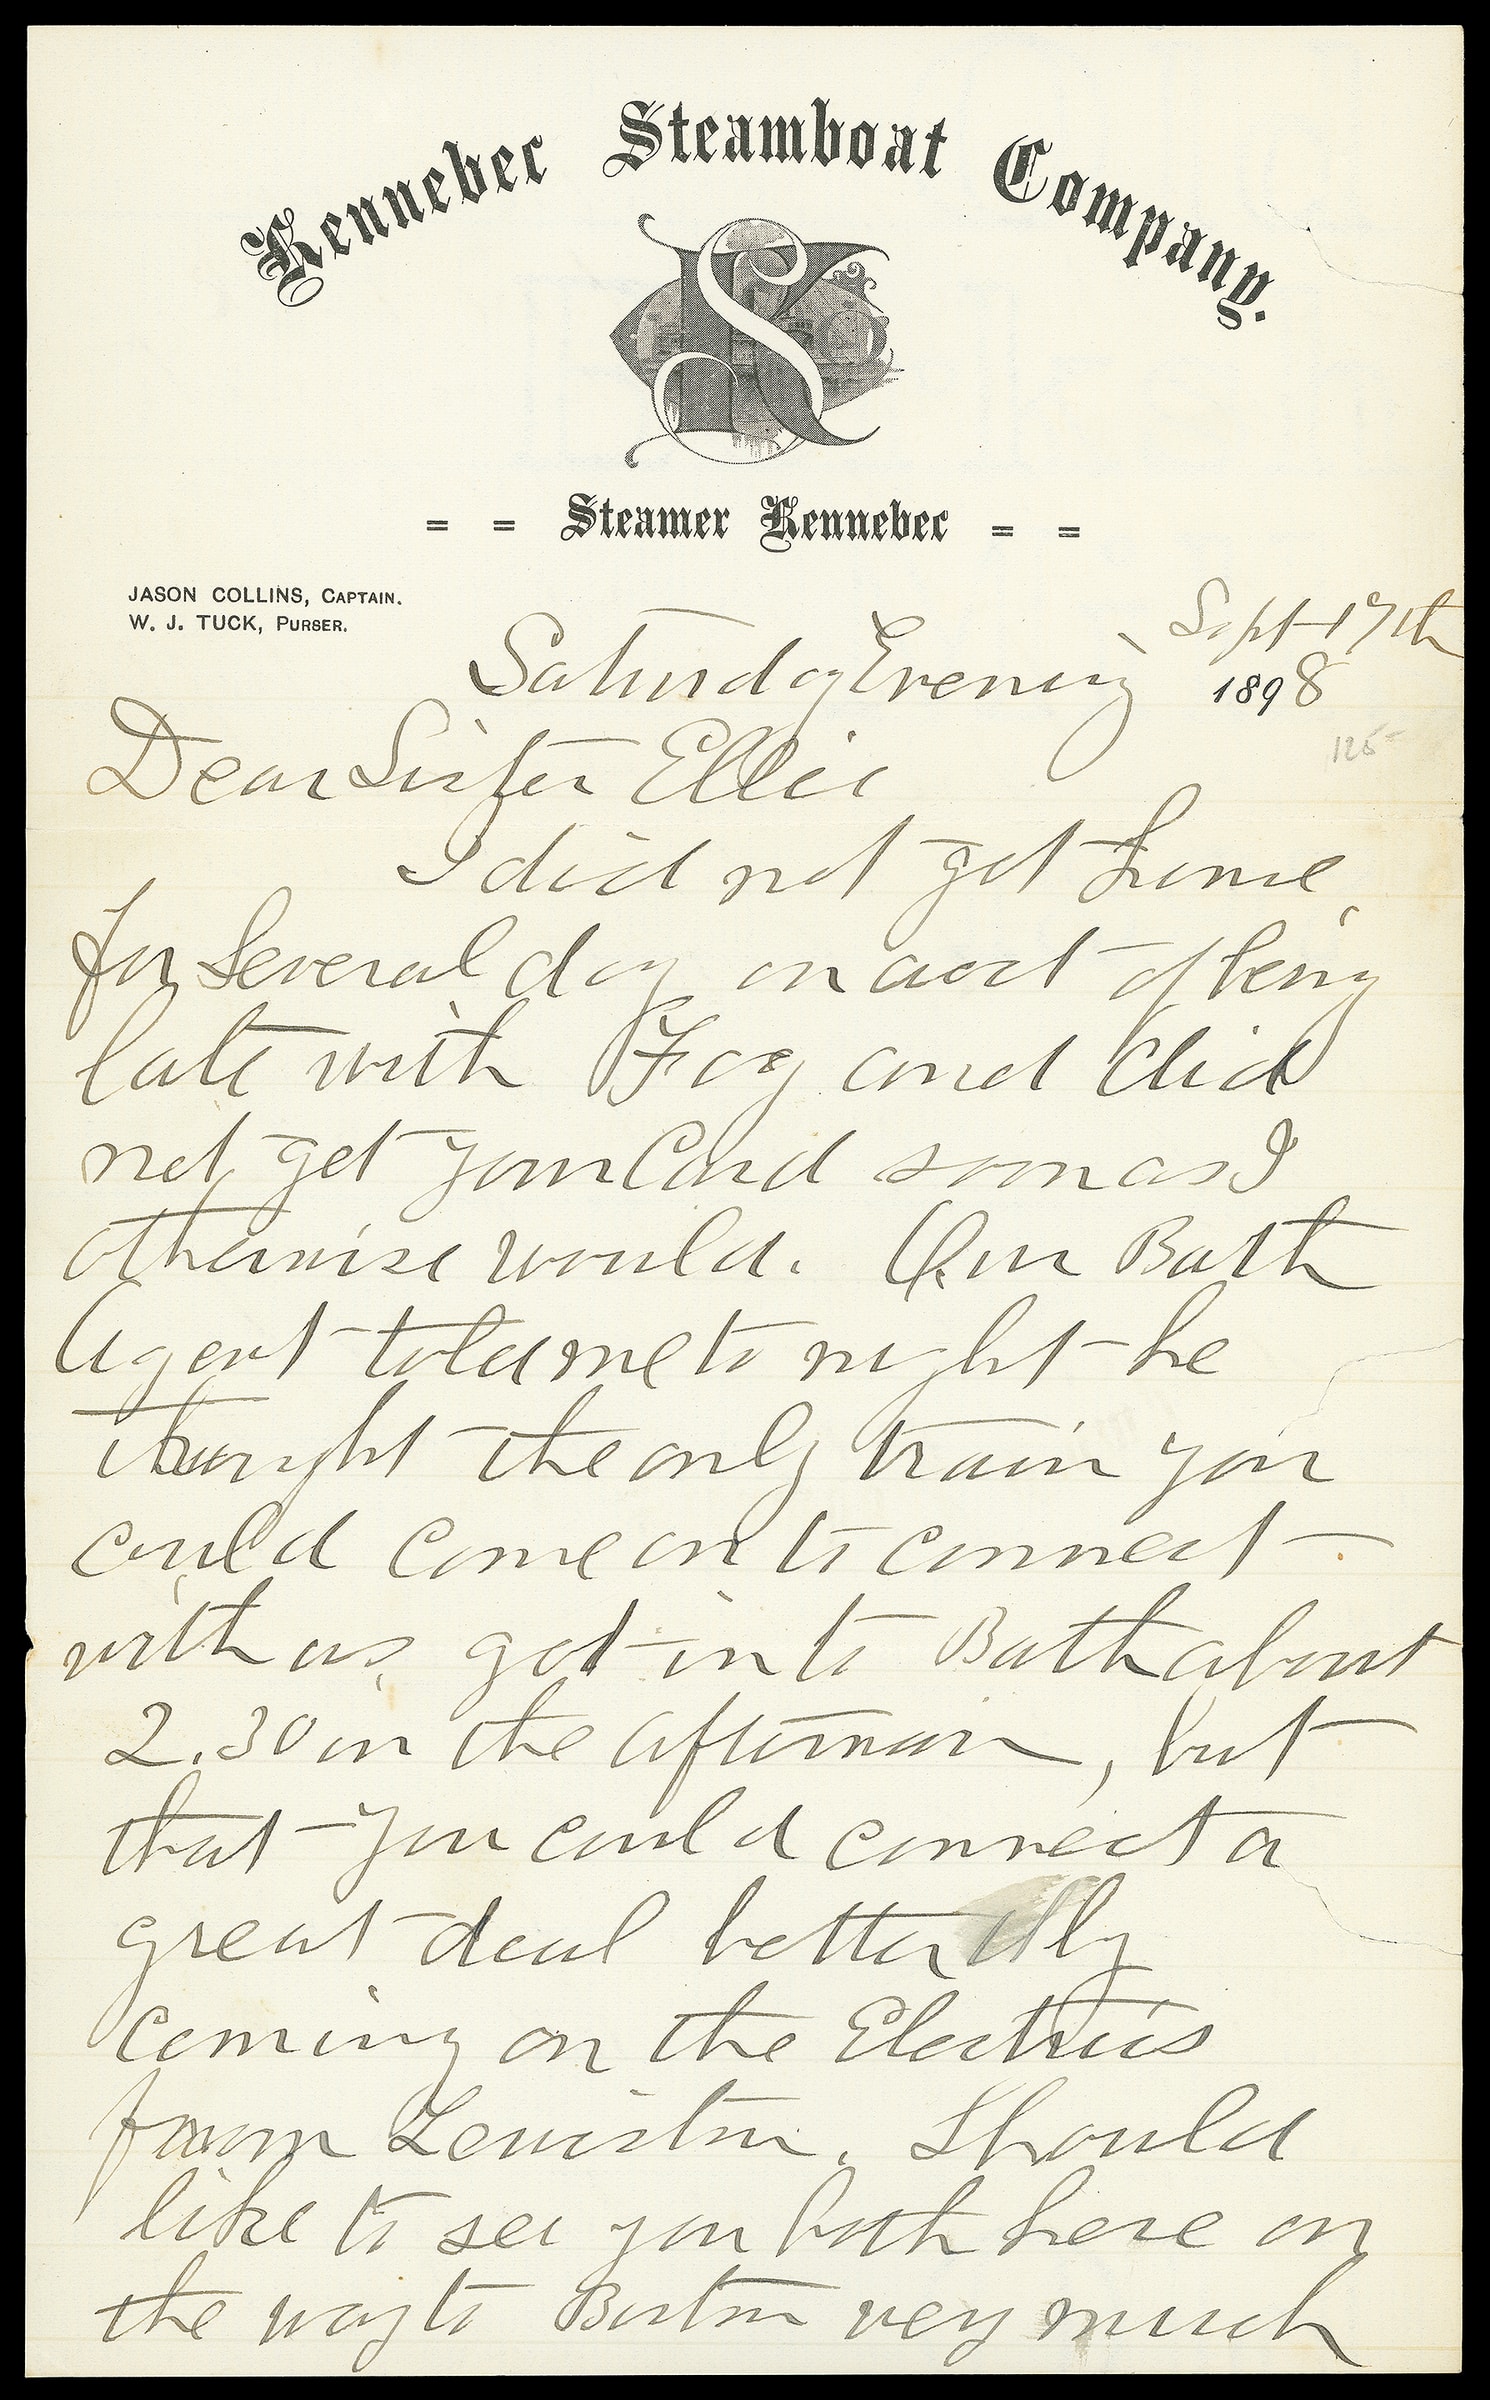 Kennebec Steamboat Company.
KS
= = Steamer Kennebec = =
JASON COLLINS, CAPTAIN.
W. J. TUCK, PURSER.
Sept 17th
Saturday Evening 1898
125-
Dear Sister Ellie
I did not get home
for several day on acct of being
late with Fog and did
not get your Card soon as I
otherwise would. Our Bath
Agent told me to night he
thought the only train you
could come on to connect
with us, got in to Bath about
2.30 in the afternoon, but
that you could connect a
great deal better by
coming on the Electrics
from Lewiston. Should
like to see you both here on
the way to Boston very much